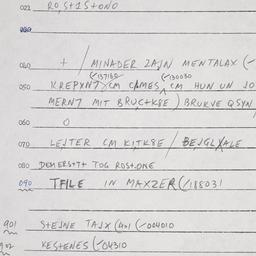 021 RO,S+1S+ONO
030
040 + / MINADER ZAJN MENTALAX (-
(-137135 (-130030
050 KREPYNT)CM CAMES, CM HUN UN JO
MERNT MIT BRUC+K8E) BRUKVE QSYN
060 O
070 LEJTER CM KITK8E / BEJGLXALE
080 DEMERST+ TOG ROS+ONE
090 TFILE IN MAXZER (/188031
901 S+EJNE TAJX (401 (-004010
902 KES+ENES (-04310